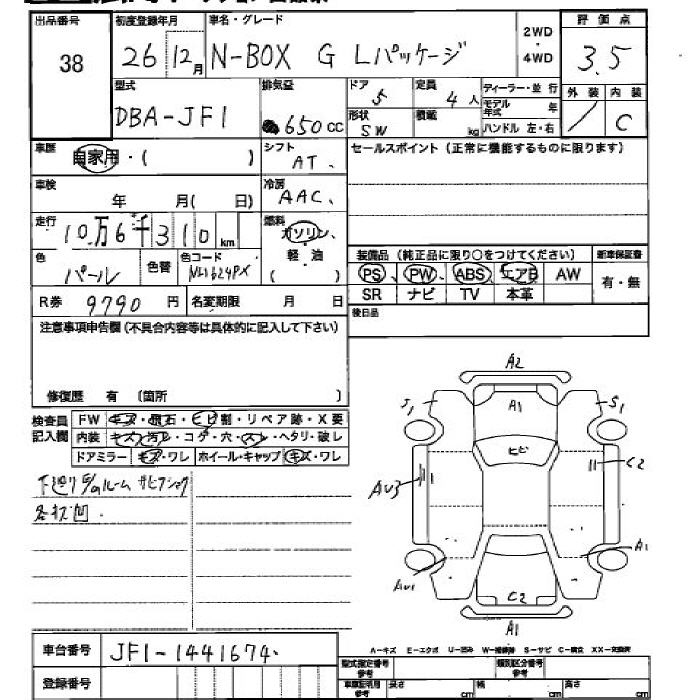 出品番号 初度登録年月 車名・グレード 2WD・4WD 評価点
38 26 12月 N-BOX G Lパッケージ 3.5
型式 排気量 ドア 定員 ディーラー・並行 外装 内装
DBA-JF1 650cc 5 4人 モデル年式 年 / C
形状 SW 積載 kg ハンドル 左・右
車歴 自家用・( ) シフト AT. セールスポイント(正常に機能するものに限ります)
車検 年 月( 日) 冷房 AAC.
走行 10万6千310km 燃料 ガソリン、軽油 ( )
色 パール 色替 色コード NH624PX
装備品(純正品に限り○をつけてください) 新車保証書
PS PW ABS エアB AW 有・無
SR ナビ TV 本革
R券 9790円 名変期限 月 日 後日品
注意事項申告欄(不具合内容等は具体的に記入して下さい)
修復歴 有(箇所 )
検査員記入欄 FW キズ・飛石・ヒビ割・リペア跡・X要
内装 キズ・汚レ・コゲ・穴・スレ・ヘタリ・破レ
ドアミラー キズ・ワレ ホイール・キャップ キズ・ワレ
下廻り
各キズ凹.
A2
A1
S1 S1
ヒビ
AU3 C2
A1
AU1
C2
A1
A-キズ E-エクボ U-凹み W-補修跡 S-サビ C-腐食 XX-交換済
車台番号 JF1-1441674.
型式指定番号 参考 類別区分番号 参考
登録番号 車庫証明用 参考 長さ cm 幅 cm 高さ cm